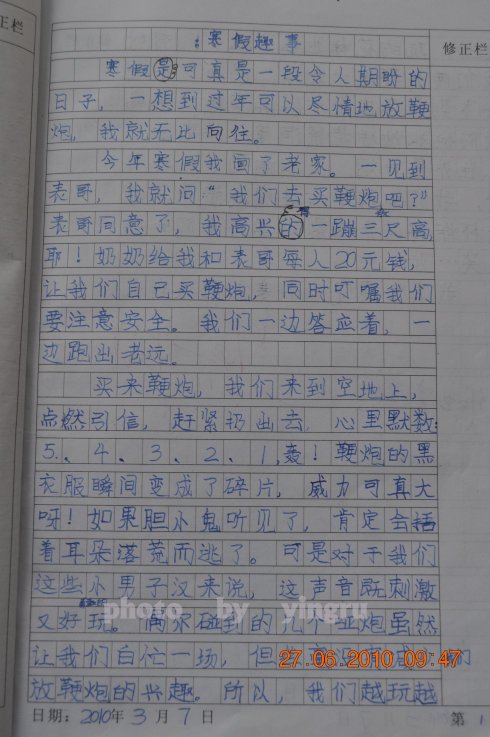 正栏
修正栏
寒假趣事
寒假是可真是一段令人期盼的
日子，一想到过年可以尽情地放鞭
炮，我就无比向往。
今年寒假我回了老家。一见到
表哥，我就问“我们去买鞭炮吧？”
表哥同意了，我高兴得一蹦三尺高，
耶！奶奶给我和表哥每人20元钱，
让我们自己买鞭炮，同时叮嘱我们
要注意安全。我们一边答应着，一
边跑出老远。
买来鞭炮，我们来到空地上，
点燃引信，赶紧扔出去，心里默数：
5、4、3、2、1，轰！鞭炮的黑
衣服瞬间变成了碎片，威力可真大
呀！如果胆小鬼听见了，肯定会捂
着耳朵落荒而逃了。可是对于我们
这些小男子汉来说，这声音既刺激
又好玩。偶尔碰到的几个哑炮虽然
让我们白忙一场，但
们
放鞭炮的兴趣。所以，我们越玩越
photo by yingru
27.06.2010 09:47
日期：2010年3月7日
第 1